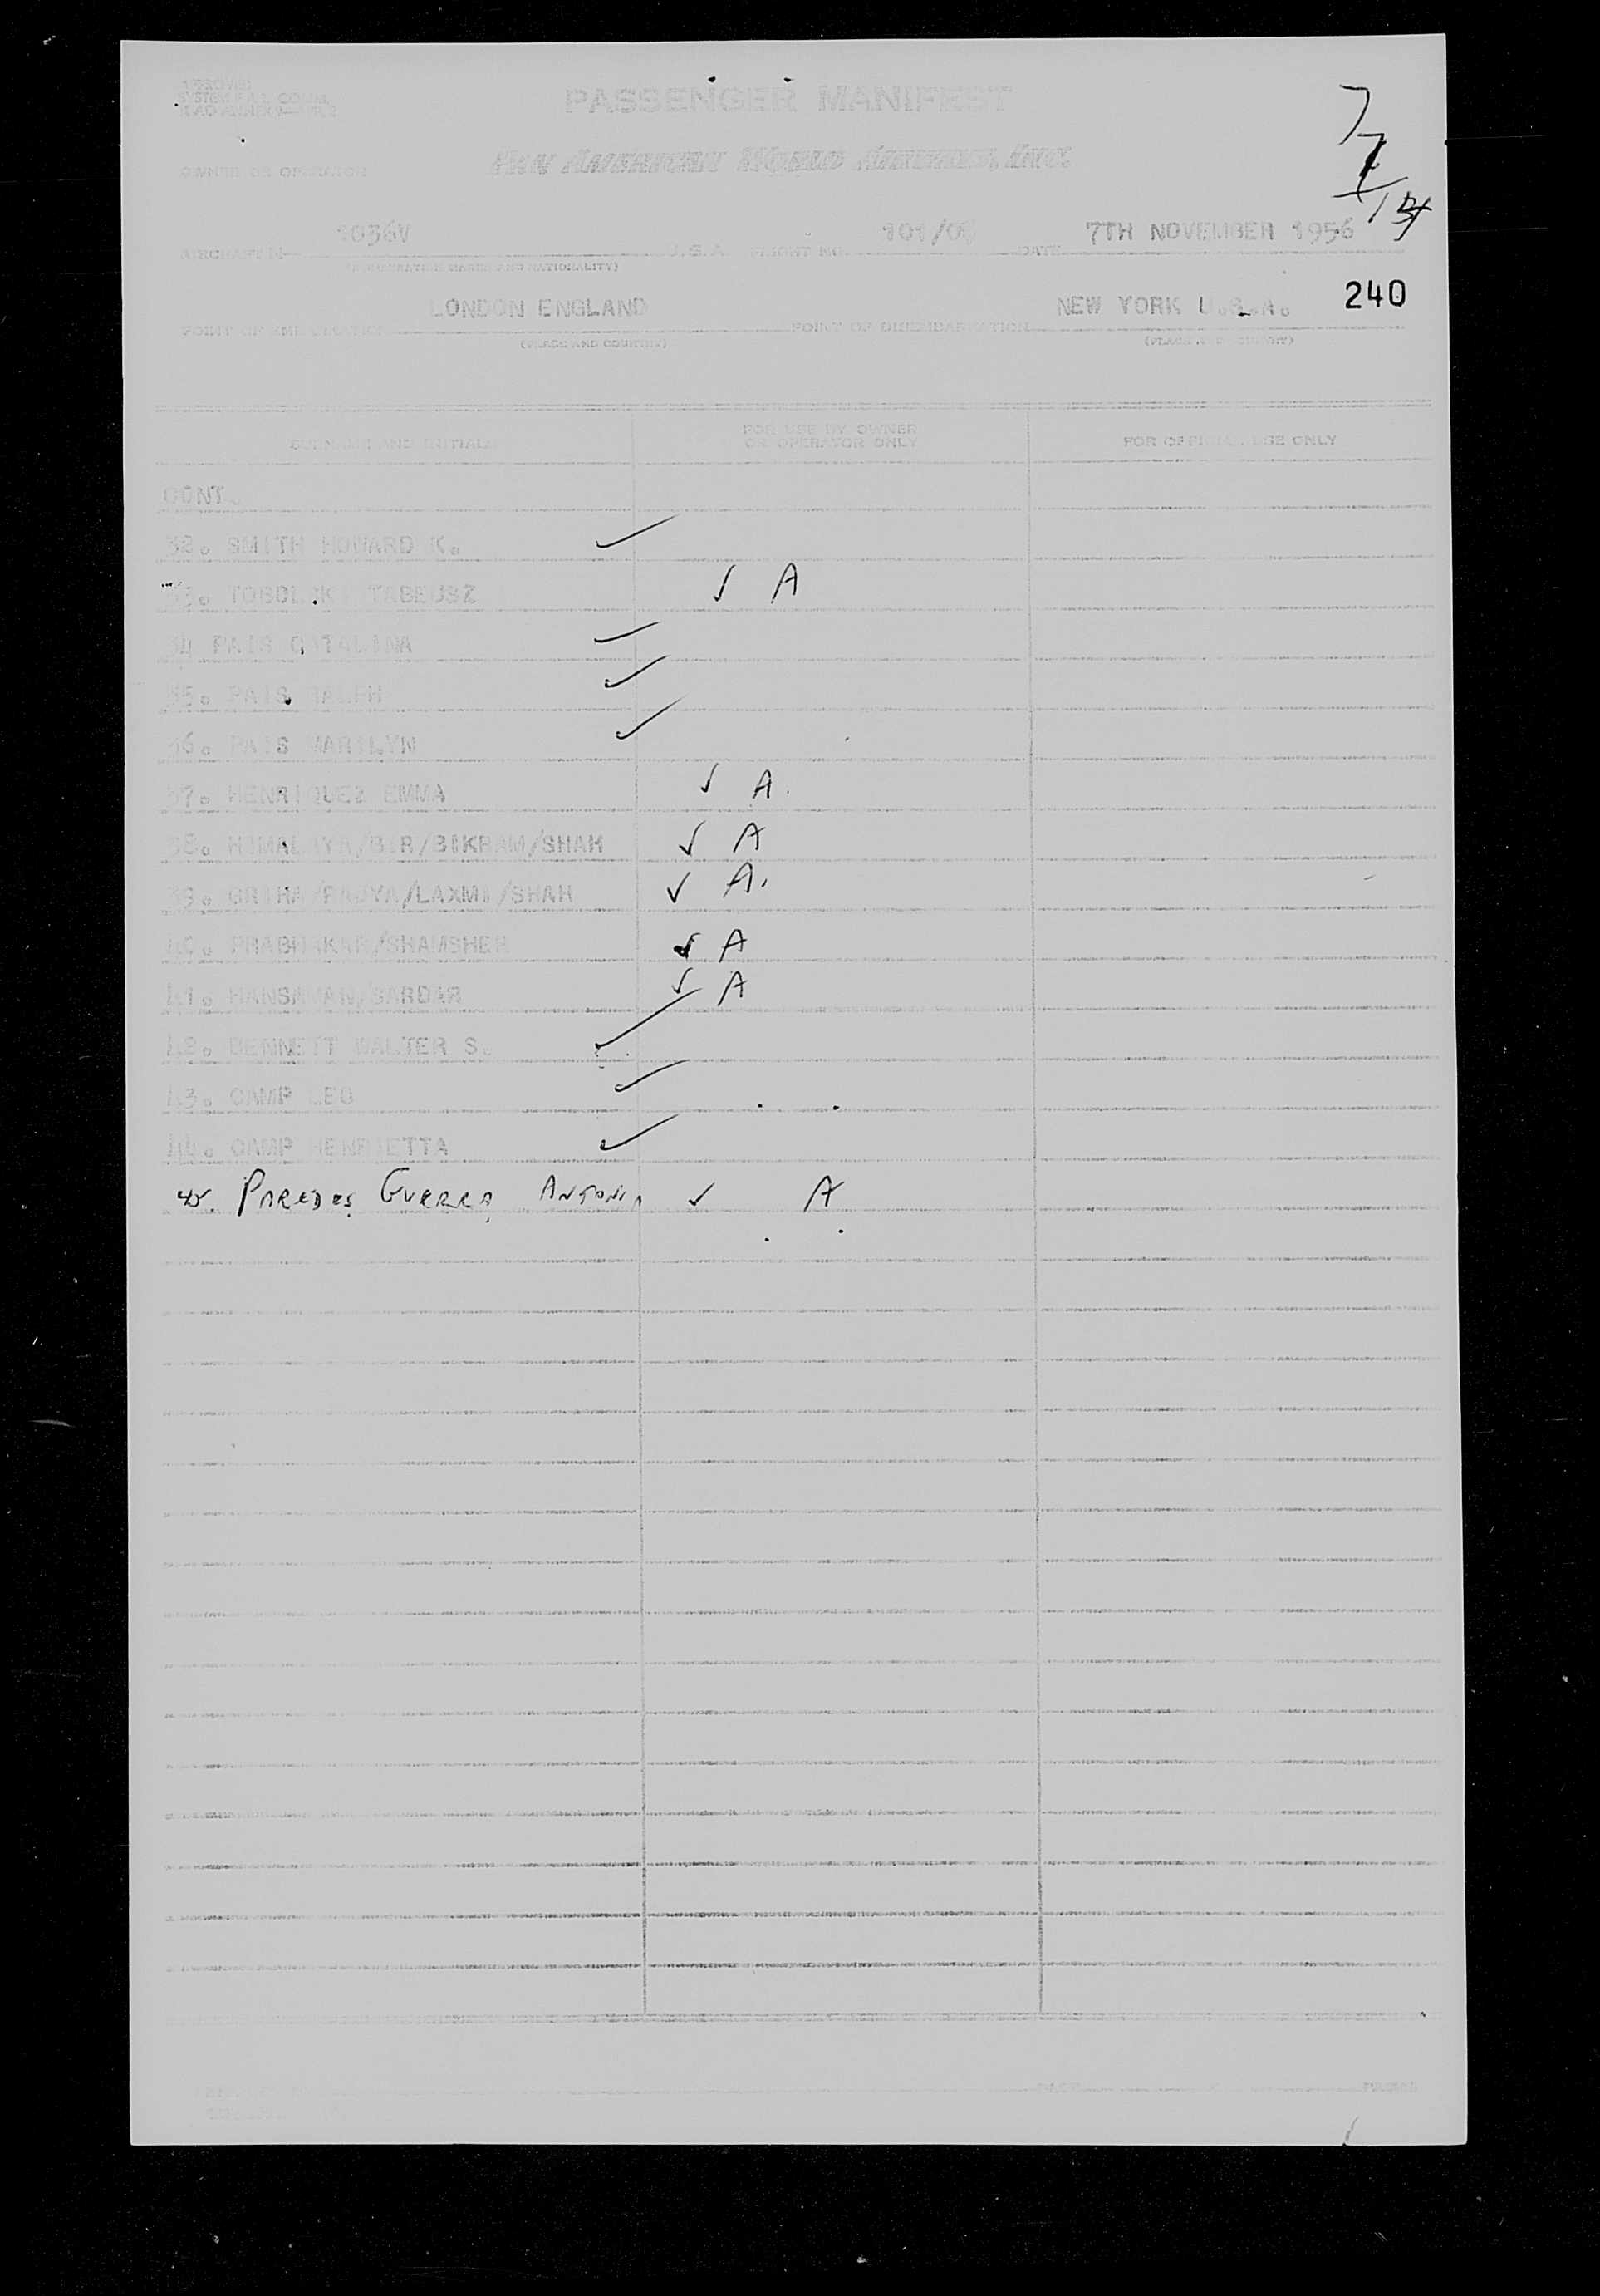 PASSENGER MANIFEST
OWNER OR OPERATOR PAN AMERICAN WORLD AIRWAYS, INC.
AIRCRAFT 1036V U.S.A. FLIGHT NO. 101/ DATE 7TH NOVEMBER 1956
(REGISTRATION MARKS AND NATIONALITY)
240
LONDON ENGLAND POINT OF DISEMBARKATION NEW YORK U.S.A.
(PLACE AND COUNTRY) (PLACE AND COUNTRY)
SURNAME AND INITIALS FOR USE BY OWNER OR OPERATOR ONLY FOR OFFICIAL USE ONLY
CONT.
32. SMITH HOWARD K. ✓
33. ✓ A
34 PAIS CATALINA ✓
35. PAIS RALPH ✓
36. PAIS MARILYN ✓
37. HENRIQUEZ EMMA ✓ A.
38. HIMALAYA/BIR/BIKRAM/SHAH ✓ A
39. /LAXMI/SHAH ✓ A.
40. PRABHAKAR/SHAMSHER ✓ A
41. /SARDAR ✓ A
42. BENNETT WALTER S. ✓
43. CAMP LEO ✓
44. CAMP HENRIETTA ✓
45. PAREDES GUERRA ANTONIA ✓ A